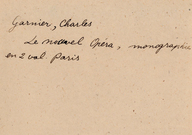 Garnier, Charles
Le nouvel Opéra, monographie
en 2 vol Paris